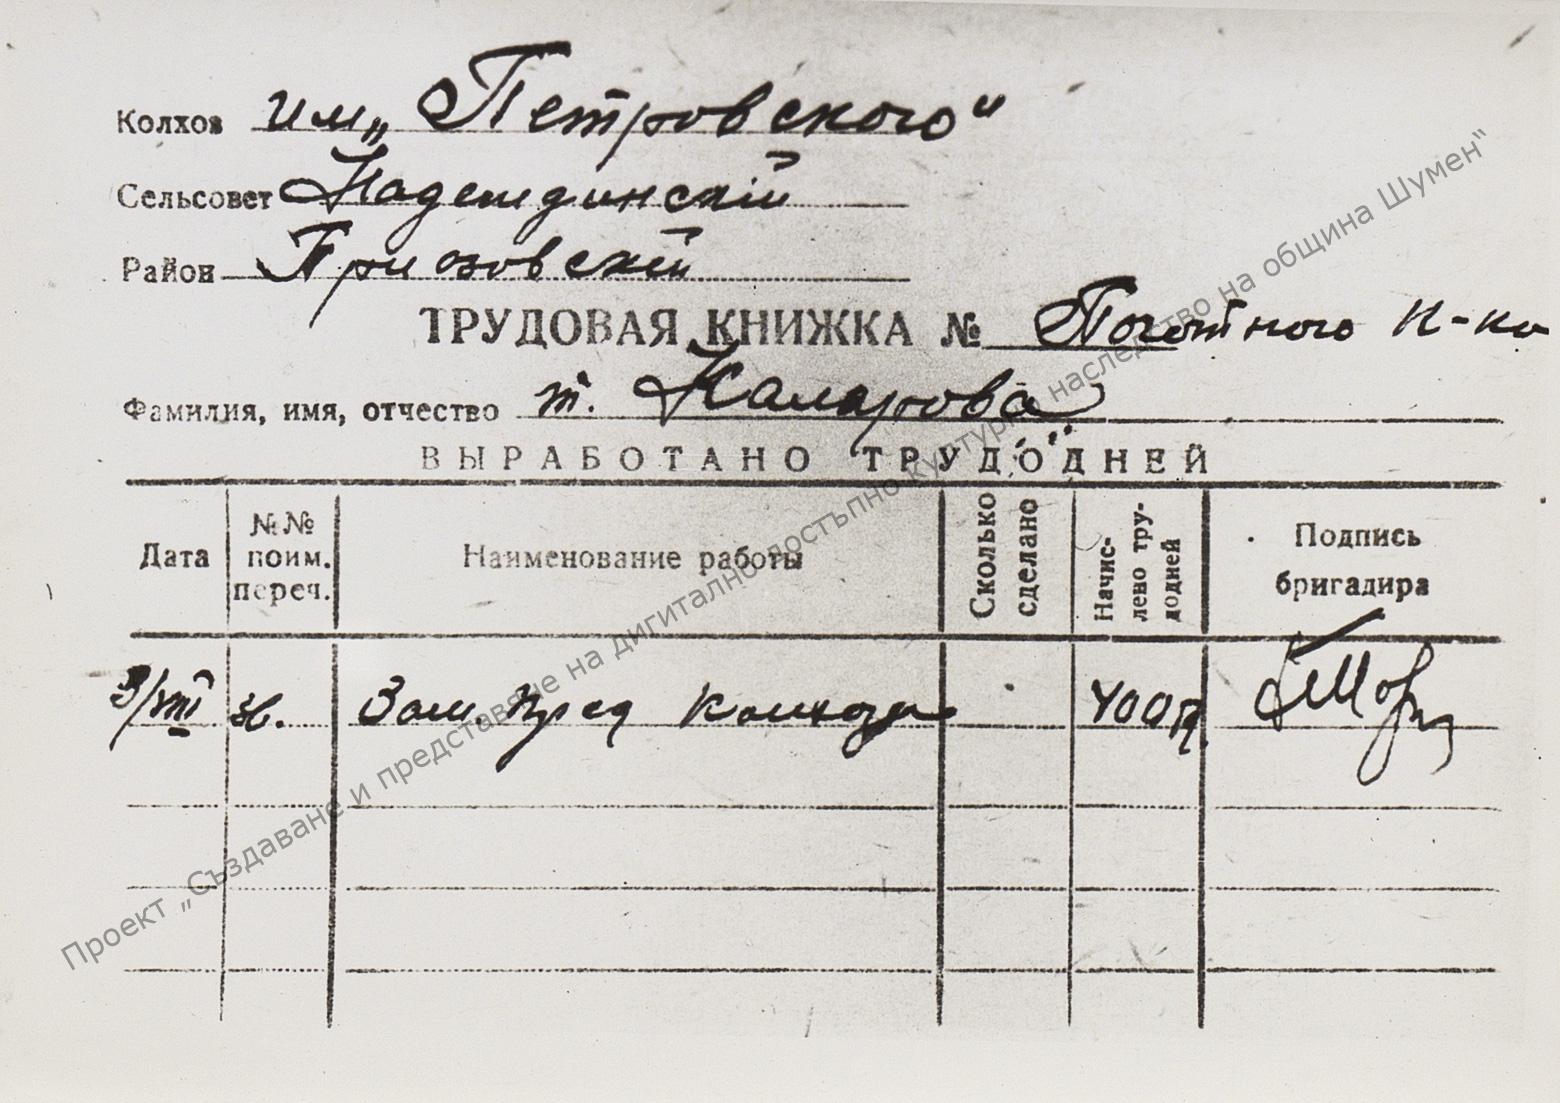 Колхоз им „Петровского"
Сельсовет Надеждинскій
Район Приозовскій
ТРУДОВАЯ КНИЖКА № Почотного к-ка
Фамилия, имя, отчество т. Каларова
ВЫРАБОТАНО ТРУДОДНЕЙ
Дата
№№ поим. переч.
Наименование работы
Сколько сделано
Начис-
лено тру-
додней
Подпись
бригадира
3/VIII Зам. пред колхоза 400
Проект „Създаване и представяне на дигитално достъпно културно наследство на община Шумен"